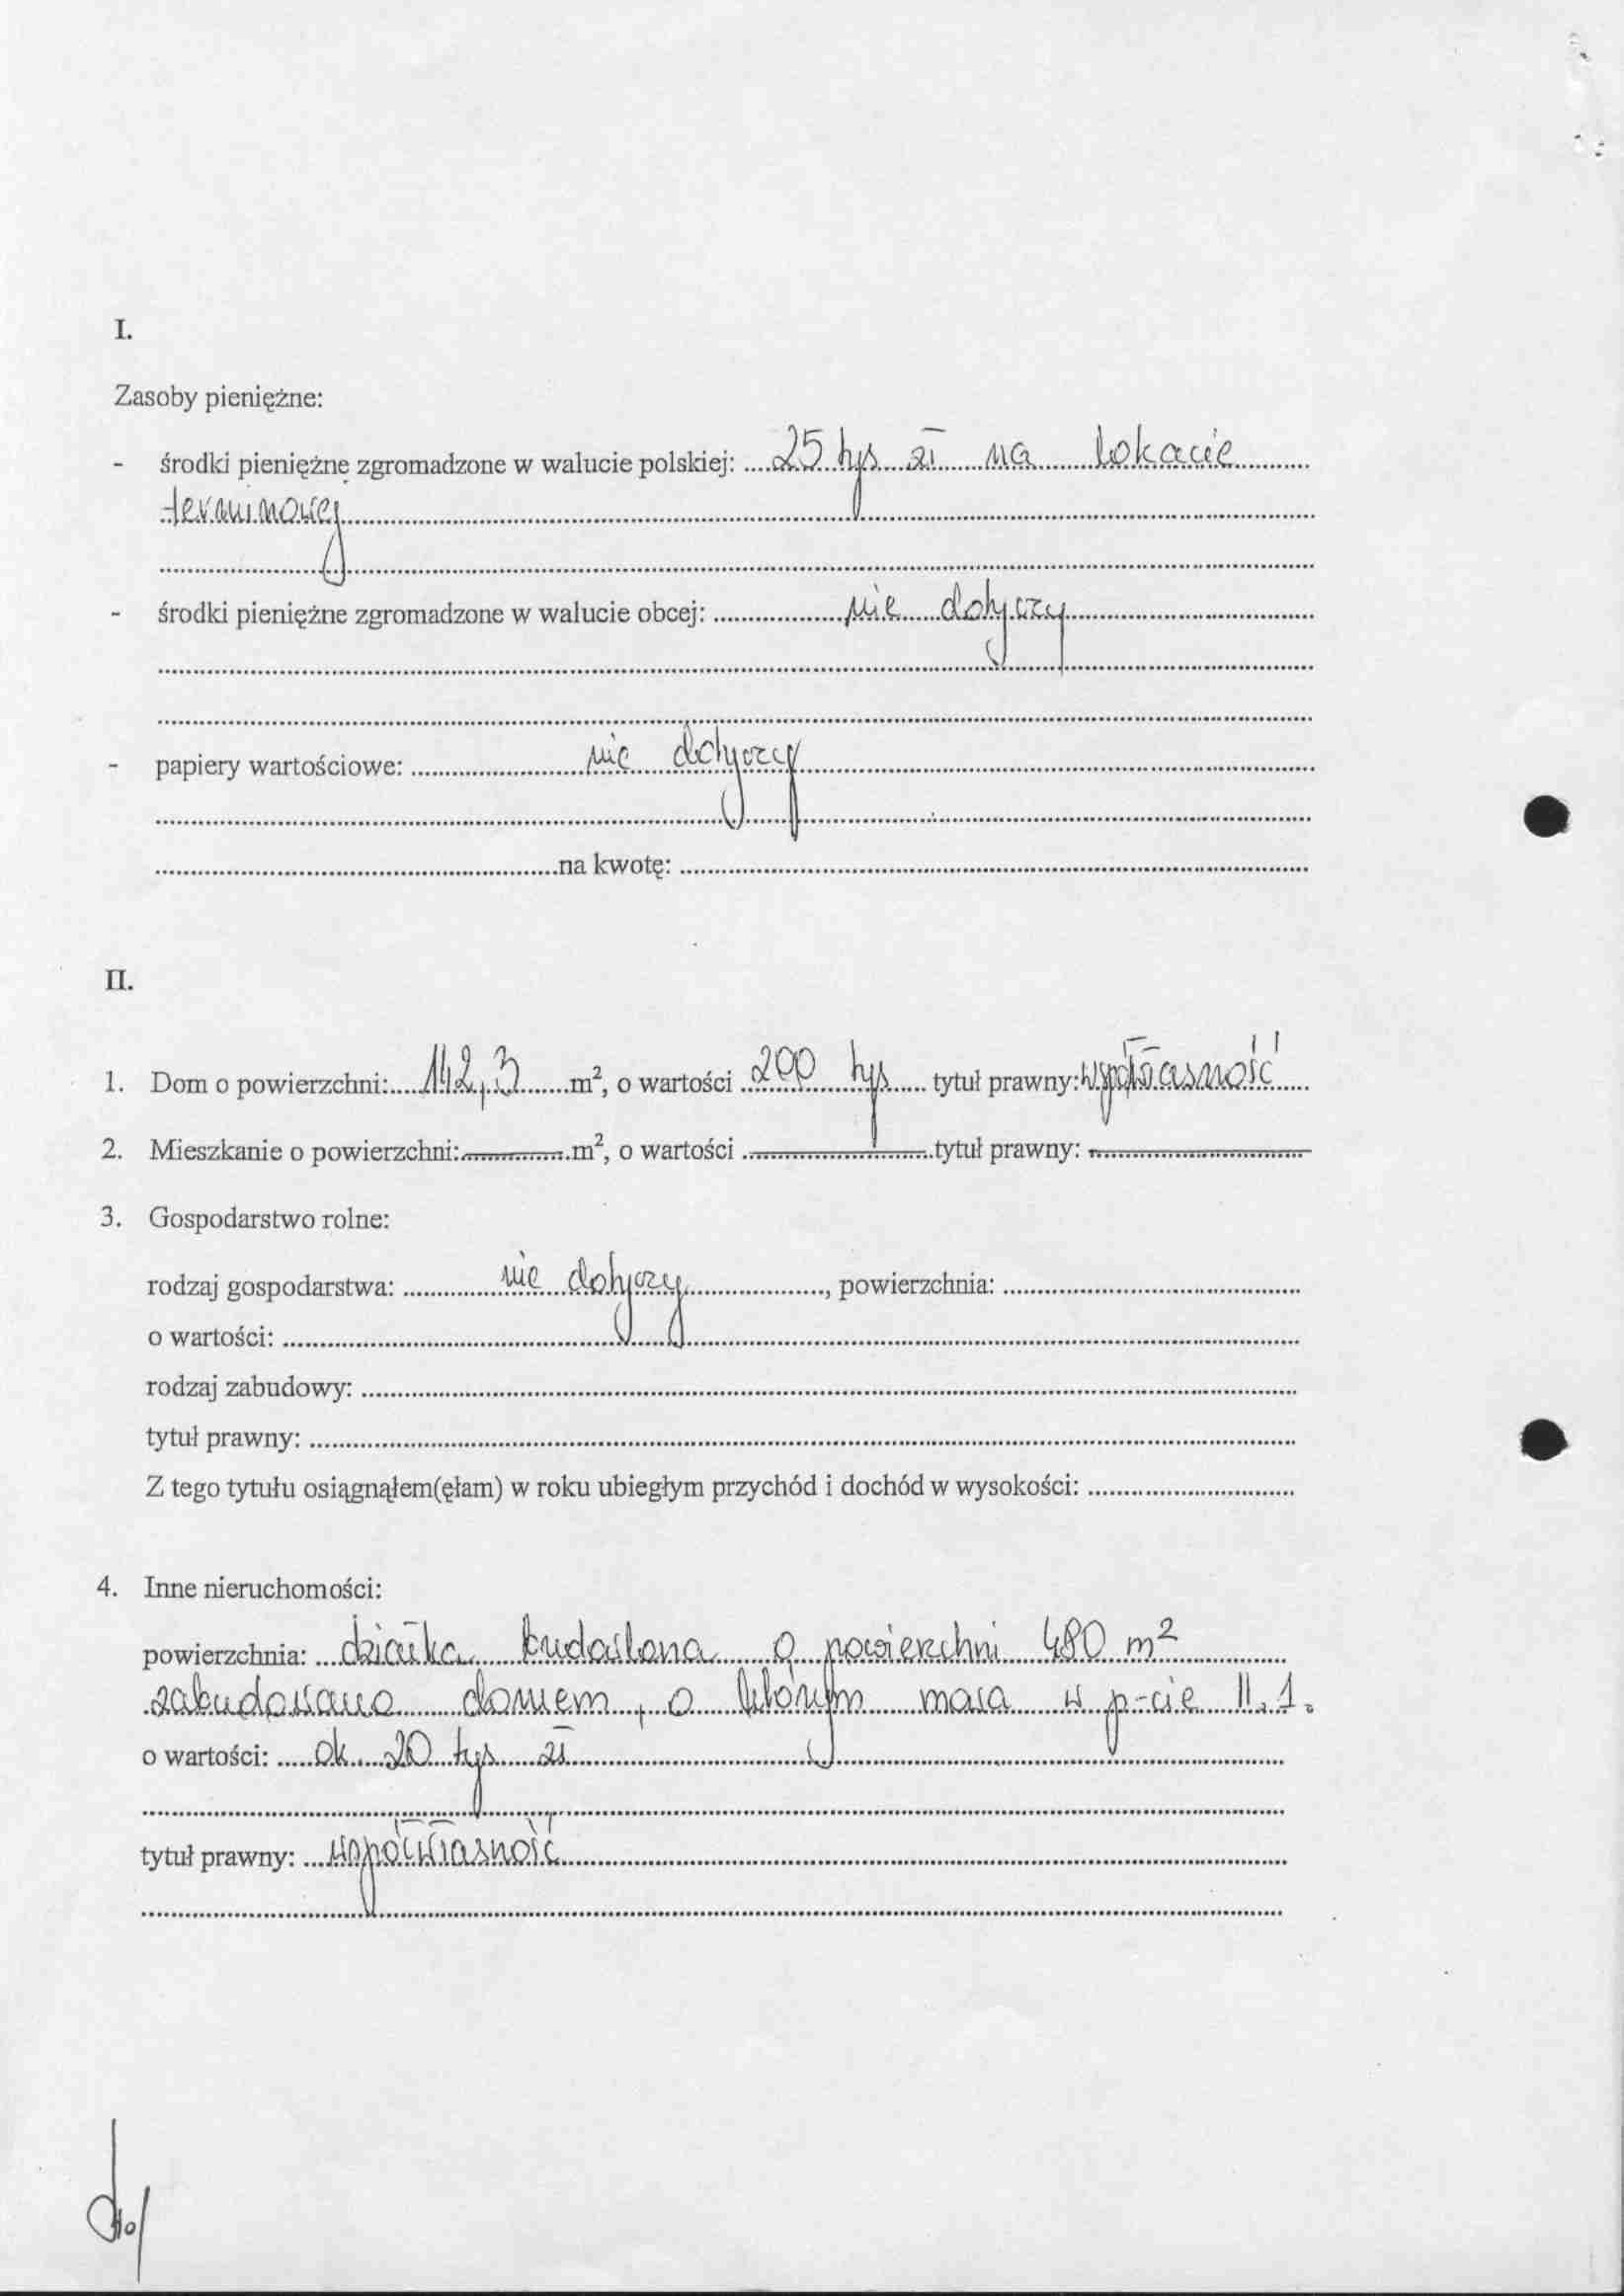 I.
Zasoby pieniężne:
- środki pieniężne zgromadzone w walucie polskiej: 25 tys zł na lokacie
terminowej
- środki pieniężne zgromadzone w walucie obcej: nie dotyczy
- papiery wartościowe: nie dotyczy
na kwotę:
II.
1. Dom o powierzchni: 142,3 m², o wartości 200 tys tytuł prawny: współwłasność
2. Mieszkanie o powierzchni: m², o wartości tytuł prawny:
3. Gospodarstwo rolne:
rodzaj gospodarstwa: nie dotyczy, powierzchnia:
o wartości:
rodzaj zabudowy:
tytuł prawny:
Z tego tytułu osiągnąłem(ęłam) w roku ubiegłym przychód i dochód w wysokości:
4. Inne nieruchomości:
powierzchnia: działka budowlana o powierzchni 480 m²
zabudowana domem, o którym mowa w p-cie II.1.
o wartości: ok. 20 tys zł
tytuł prawny: współwłasność